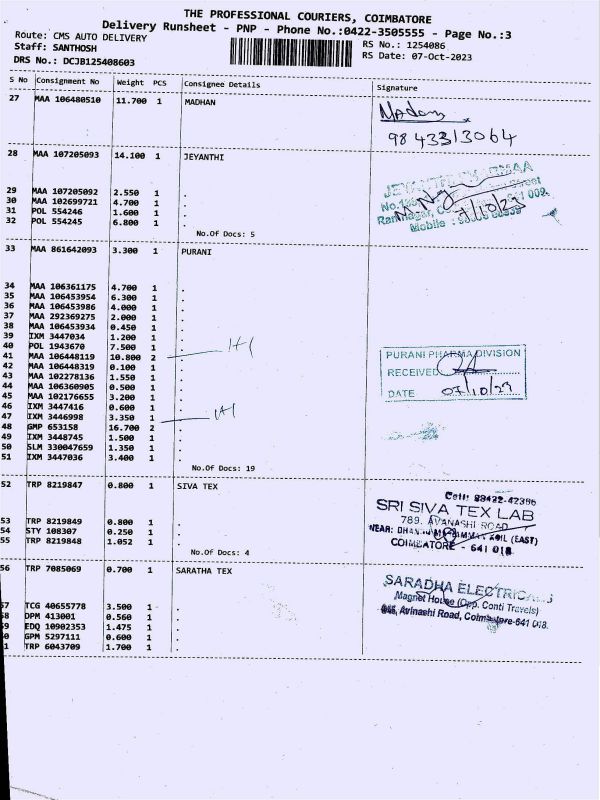 THE PROFESSIONAL COURIERS, COIMBATORE
Delivery Runsheet - PNP - Phone No.:0422-3505555 - Page No.:3
Route: CMS AUTO DELIVERY
RS No.: 1254086
Staff: SANTHOSH
RS Date: 07-Oct-2023
DRS No.: DCJB125408603
S No Consignment No Weight PCS Consignee Details Signature
27 MAA 106480510 11.700 1 MADHAN
9843313064
28 MAA 107205093 14.100 1 JEYANTHI
29 MAA 107205092 2.550 1 .
30 MAA 102699721 4.700 1 .
31 POL 554246 1.600 1 .
32 POL 554245 6.800 1 .
7/10/23
Mobile :
No.Of Docs: 5
33 MAA 861642093 3.300 1 PURANI
34 MAA 106361175 4.700 1 .
35 MAA 106453954 6.300 1 .
36 MAA 106453986 4.000 1 .
37 MAA 292369275 2.000 1 .
38 MAA 106453934 0.450 1 .
39 IXM 3447034 1.200 1 .
40 POL 1943670 7.500 1 .
41 MAA 106448119 10.800 2 . 1+1
42 MAA 106448319 0.100 1 .
43 MAA 102278136 1.550 1 .
44 MAA 106360905 0.500 1 .
45 MAA 102176655 3.200 1 .
46 IXM 3447416 0.600 1 .
47 IXM 3446998 3.350 1 . 1+1
48 GMP 653158 16.700 2 .
49 IXM 3448745 1.500 1 .
50 SLM 330047659 1.350 1 .
51 IXM 3447036 3.400 1 .
PURANI PHARMA DIVISION
RECEIVED
DATE 07/10/23
No.Of Docs: 19
52 TRP 8219847 0.800 1 SIVA TEX
53 TRP 8219849 0.800 1 .
54 STY 108307 0.250 1 .
55 TRP 8219848 1.052 1 .
Cell: 98422-42386
SRI SIVA TEX LAB
789, AVANASHI ROAD
COIMBATORE - 641 018.
No.Of Docs: 4
56 TRP 7085069 0.700 1 SARATHA TEX
57 TCG 40655778 3.500 1 .
58 DPM 413001 0.560 1 .
59 EDQ 10902353 1.475 1 .
60 GPM 5297111 0.600 1 .
61 TRP 6043709 1.700 1 .
SARADHA ELECTRICALS
Magnet House (Opp. Conti Travels)
Avinashi Road, Coimbatore-641 018.